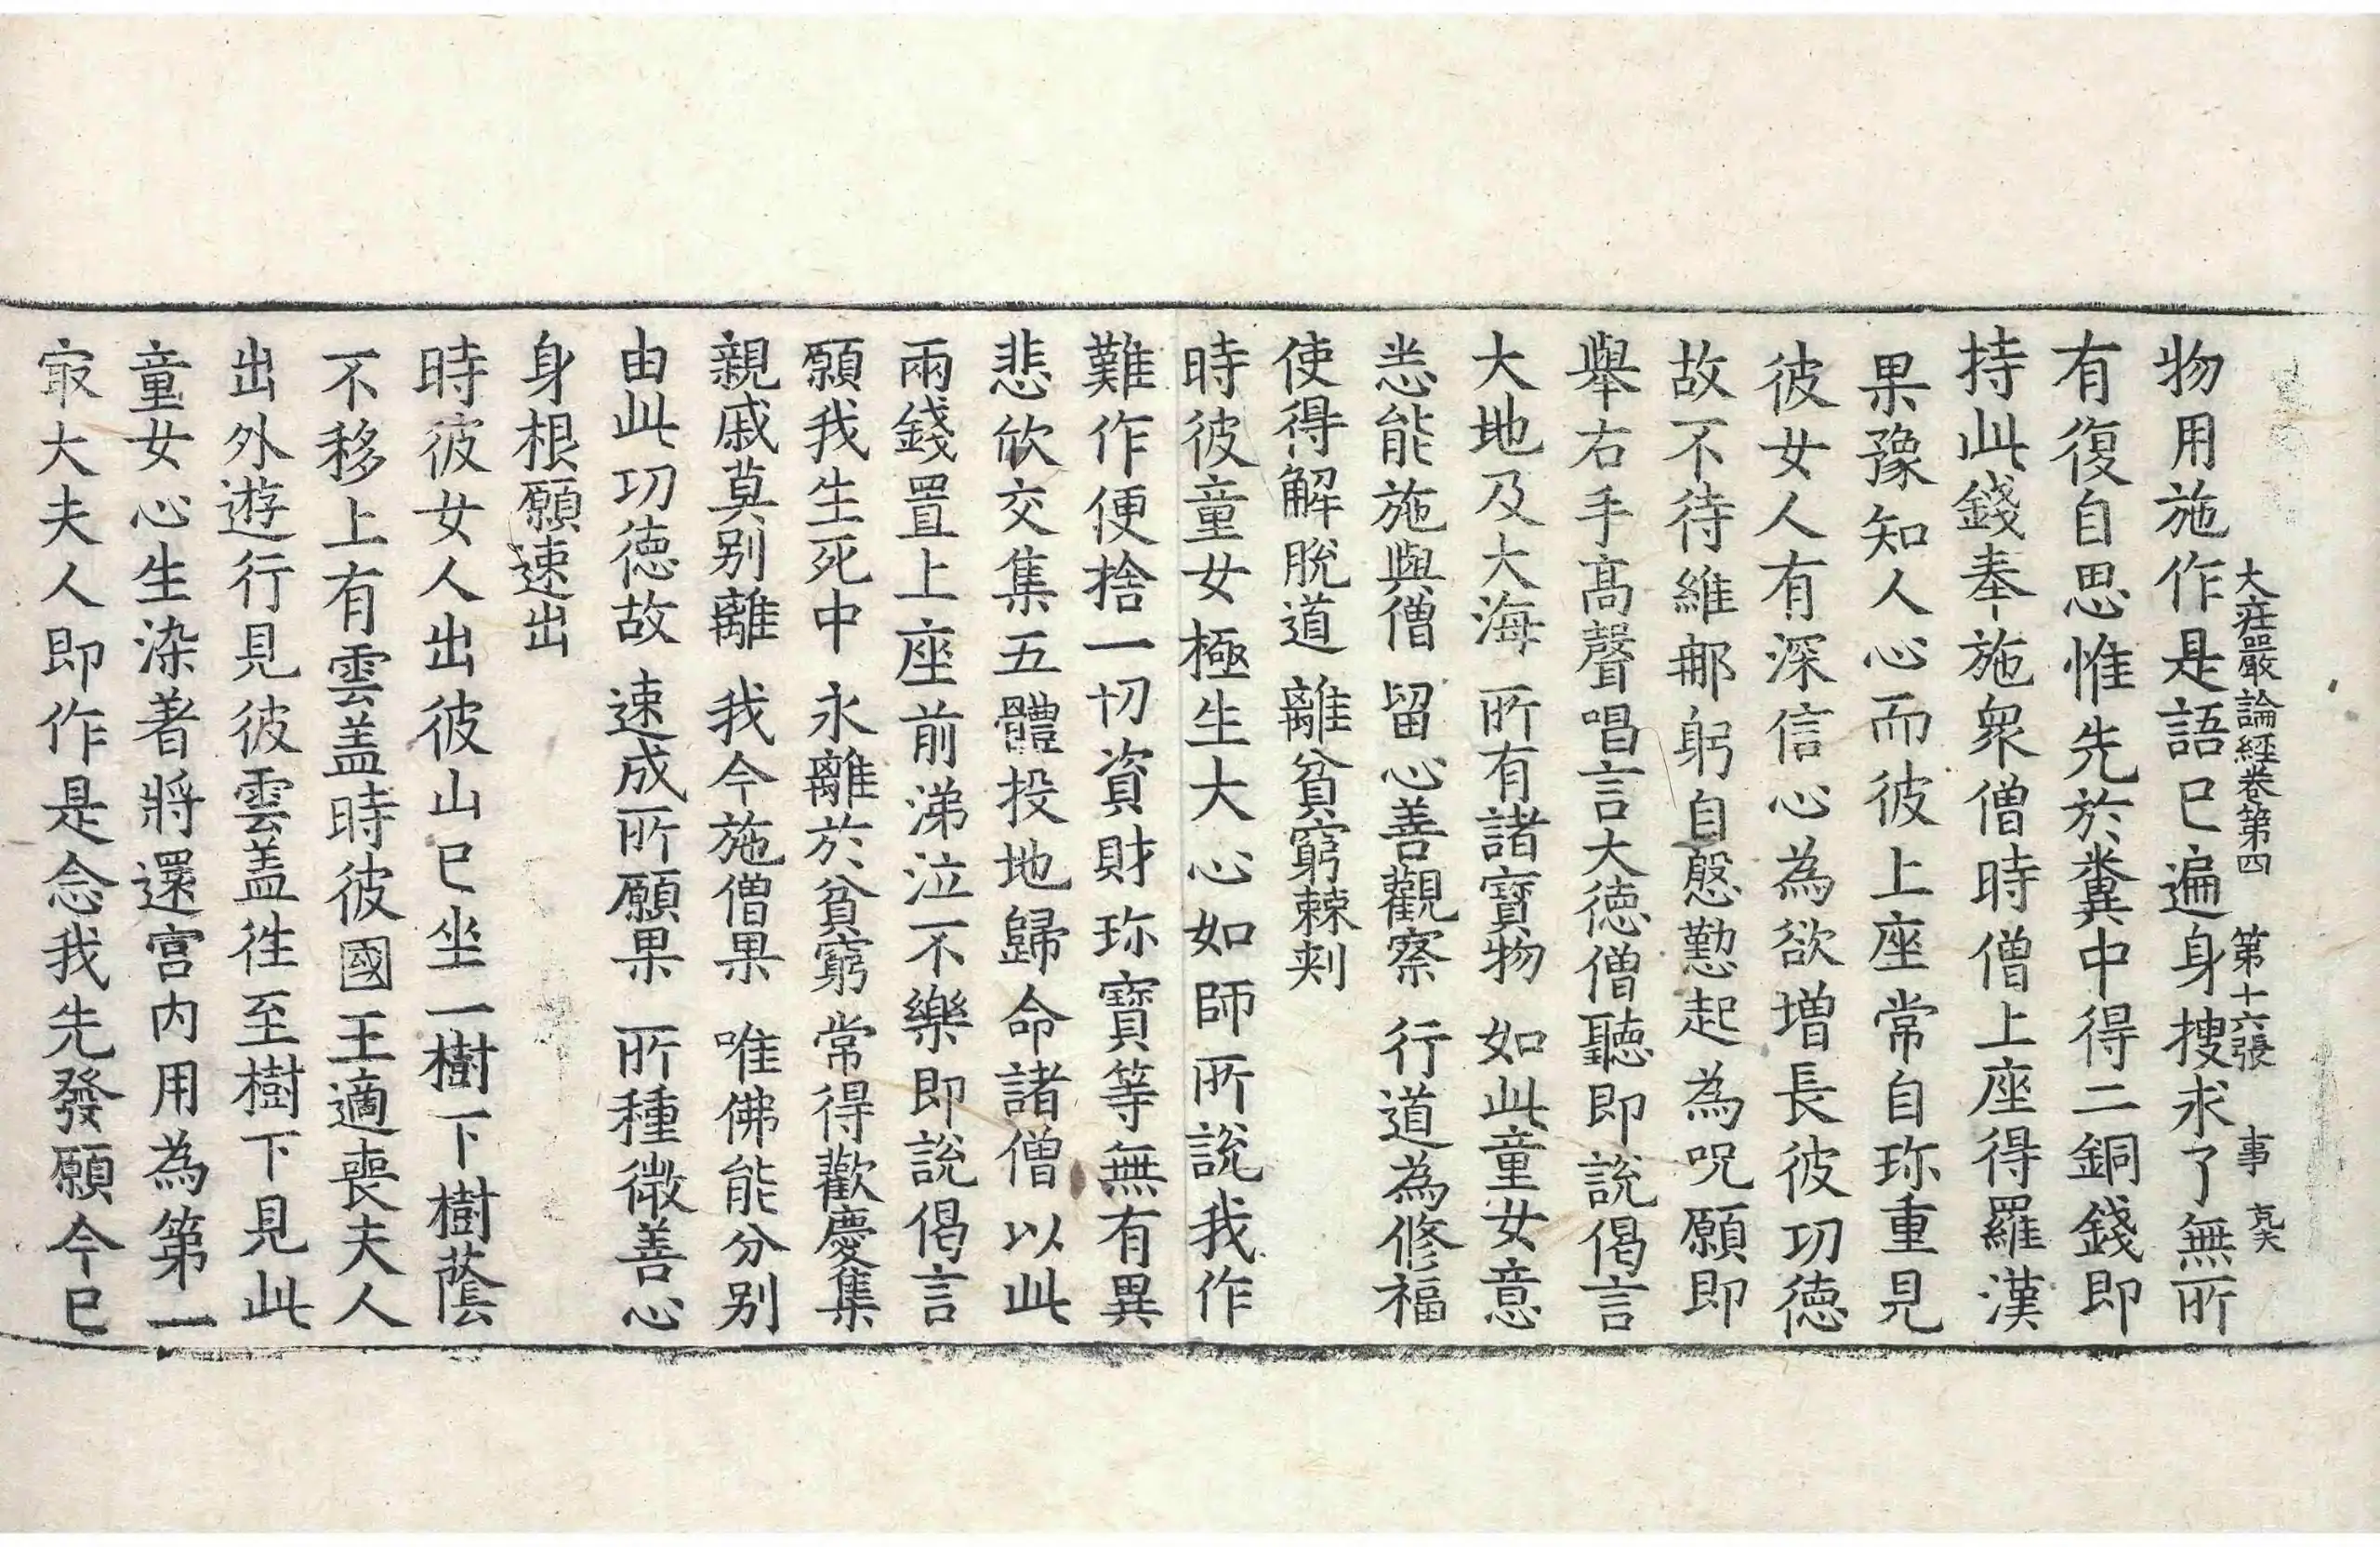 大庄嚴論經卷第四 第十六張 事
物用施作是語已遍身搜求了無所
有復自思惟先於糞中得二銅錢即
持此錢奉施衆僧時僧上座得羅漢
果豫知人心而彼上座常自珎重見
彼女人有深信心為欲增長彼功徳
故不待維那躬自慇懃起為呪願即
舉右手髙聲唱言大徳僧聽即說偈言
大地及大海 所有諸寶物 如此童女意
悉能施與僧 留心善觀察 行道為修福
使得解脫道 離貧窮棘刾
時彼童女極生大心如師所說我作
難作便捨一切資財珎寶等無有異
悲欣交集五體投地歸命諸僧以此
兩錢置上座前涕泣不樂即說偈言
願我生死中 永離於貧窮 常得歡慶集
親戚莫别離 我今施僧果 唯佛能分别
由此功徳故 速成所願果 所種微善心
身根願速出
時彼女人出彼山已坐一樹下樹蔭
不移上有雲盖時彼國王適喪夫人
出外遊行見彼雲盖徃至樹下見此
童女心生染著將還宮内用為第一
㝡大夫人即作是念我先發願今已